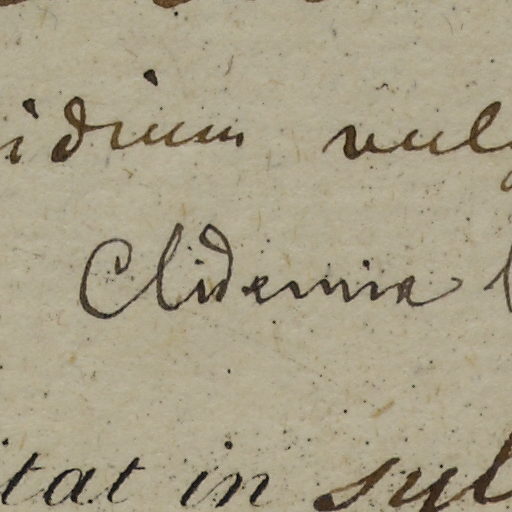 idium vulg
Clidemia
itat in syl